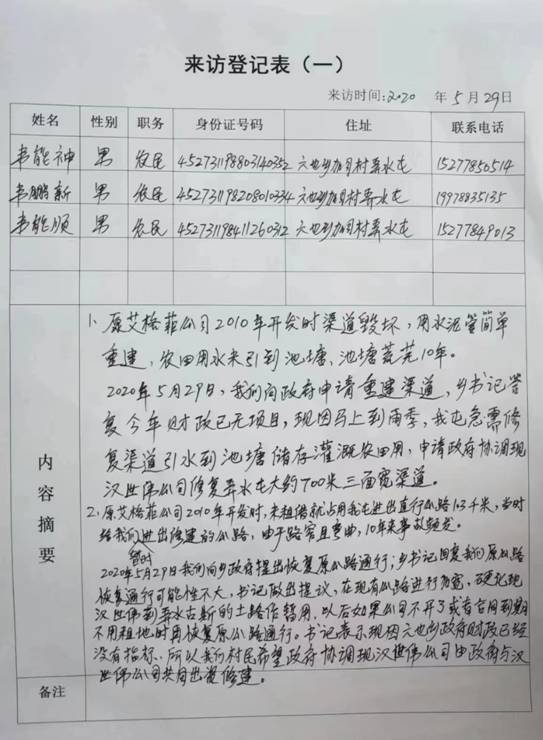 来访登记表（一）
来访时间:2020 年5月29日
姓名 性别 职务 身份证号码 住址 联系电话
韦能神 男 农民 452731198803140352 六也乡加司村弄水屯 15277850514
韦鹏新 男 农民 452731198208010334 六也乡加司村弄水屯 19978835135
韦能顺 男 农民 452731198411260312 六也乡加司村弄水屯 15277849013
内容摘要
1、原艾格菲公司2010年开发时渠道毁坏，用水泥管简单
重建，农田用水来引到池塘，池塘荒芜10年。
2020年5月29日，我们向政府申请重建渠道，乡书记答
复今年财政已无项目，现因马上到雨季，我屯急需修
复渠道引水到池塘储存灌溉农田用，申请政府协调现
汉世伟公司修复弄水屯大约700米三面宽渠道。
2、原艾格菲公司2010年开发时，未租借就占用我屯进出直行公路1.3千米，当时
给我们暂时进出修建的公路，由于路窄且弯曲，10年来事故频发。
2020年5月29日我们向乡政府提出恢复原公路通行；乡书记回复我们原公路
恢复通行可能性不大，书记做出提议，在现有公路进行加宽，硬化现
汉世伟到弄水古新的土路作替用，以后如果公司不开了或者合同到期
不用租地时再恢复原公路通行。书记表示现因六也乡政府财政已经
没有指标，所以我们村民希望政府协调现汉世伟公司由政府与汉
世伟公司共同出资修建。
备注